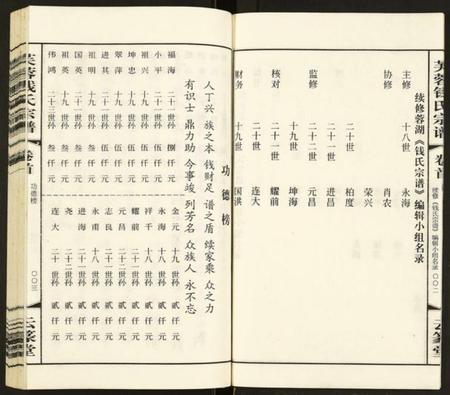 芙蓉钱氏宗谱 卷首 续修《钱氏宗谱》编辑小组名录 〇〇二 云篆堂
续修蓉湖《钱氏宗谱》编辑小组名录
主修 十八世 永海
协修 肖农
荣兴
二十世 柏度
监修 二十一世 进昌
二十二世 元昌
十九世 坤海
核对 二十一世 耀前
二十二世 连大
财务 十九世 国洪
功德榜
人丁兴 族之本 钱财足 谱之盾 续家乘 众之力
有识士 鼎力助 今事竣 列芳名 众族人 永不忘
福海 二十世孙 捌仟元
小平 二十一世孙 伍仟元
祖兴 十九世孙 伍仟元
坤忠 十九世孙 伍仟元
翠萍 二十世孙 伍仟元
进其 二十一世孙 伍仟元
祖明 十九世孙 叁仟元
国英 十九世孙 叁仟元
祖英 十九世孙 叁仟元
伟鸿 二十三世孙 叁仟元
金元 十九世孙 贰仟元
永海 十八世孙 贰仟元
祥千 十八世孙 贰仟元
耀前 二十一世孙 贰仟元
元昌 二十二世孙 贰仟元
志良 二十一世孙 贰仟元
永甫 十八世孙 贰仟元
进海 二十一世孙 贰仟元
尧 二十二世孙 贰仟元
连大 二十二世孙 贰仟元
芙蓉钱氏宗谱 卷首 功德榜 〇〇三 云篆堂